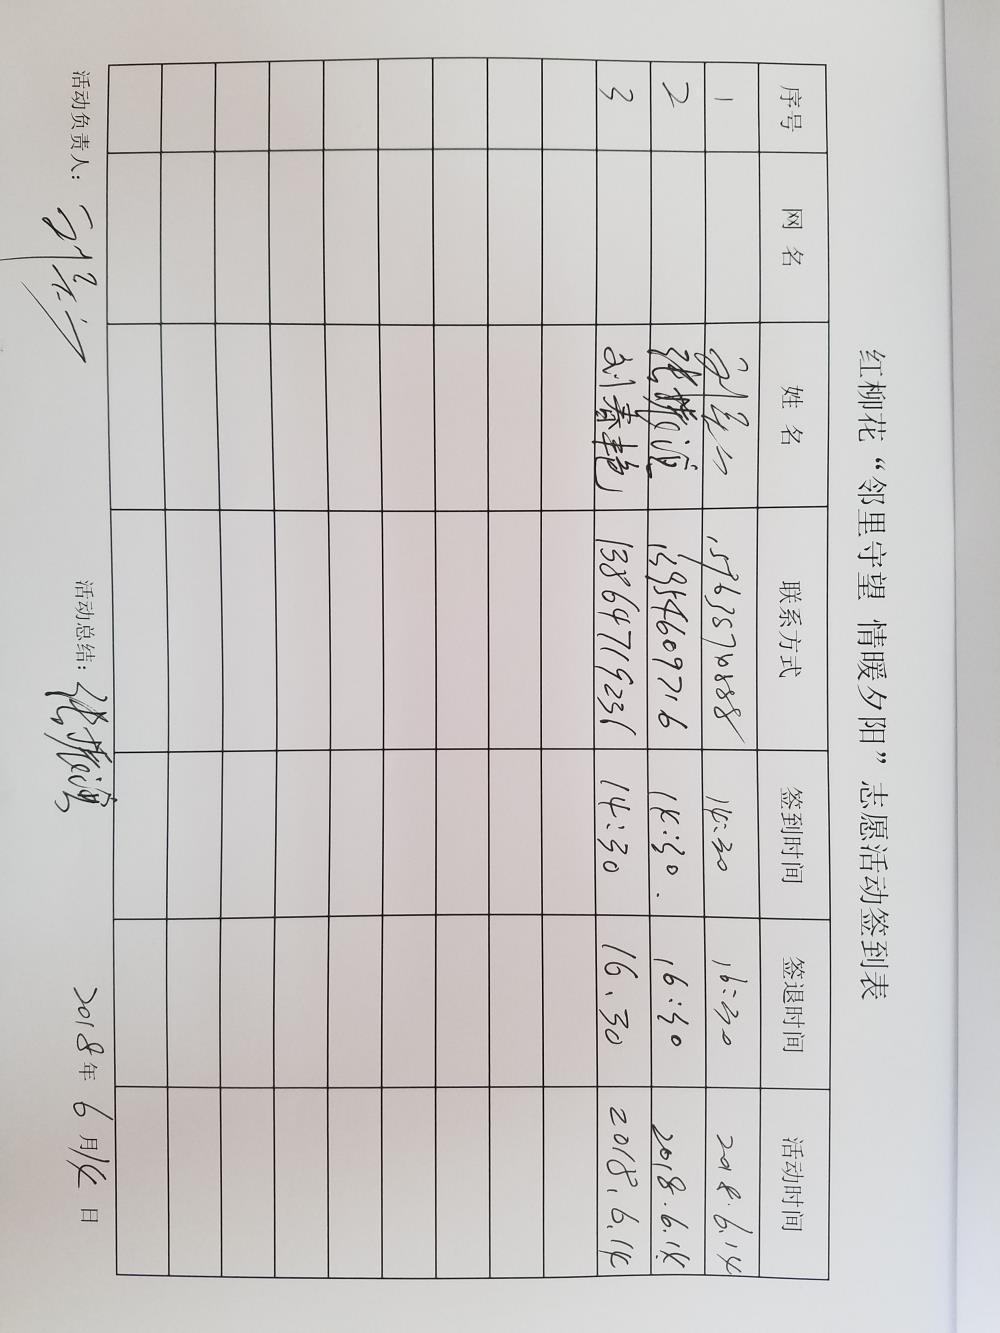 红柳花“邻里守望 情暖夕阳”志愿活动签到表
序号 网 名 姓 名 联系方式 签到时间 签退时间 活动时间
1 14:30 16:30 2018.6.14
2 14:30. 16:30 2018.6.14
3 刘春艳 13864719231 14:30 16.30 2018.6.14
活动负责人: 活动总结: 2018年6月14日